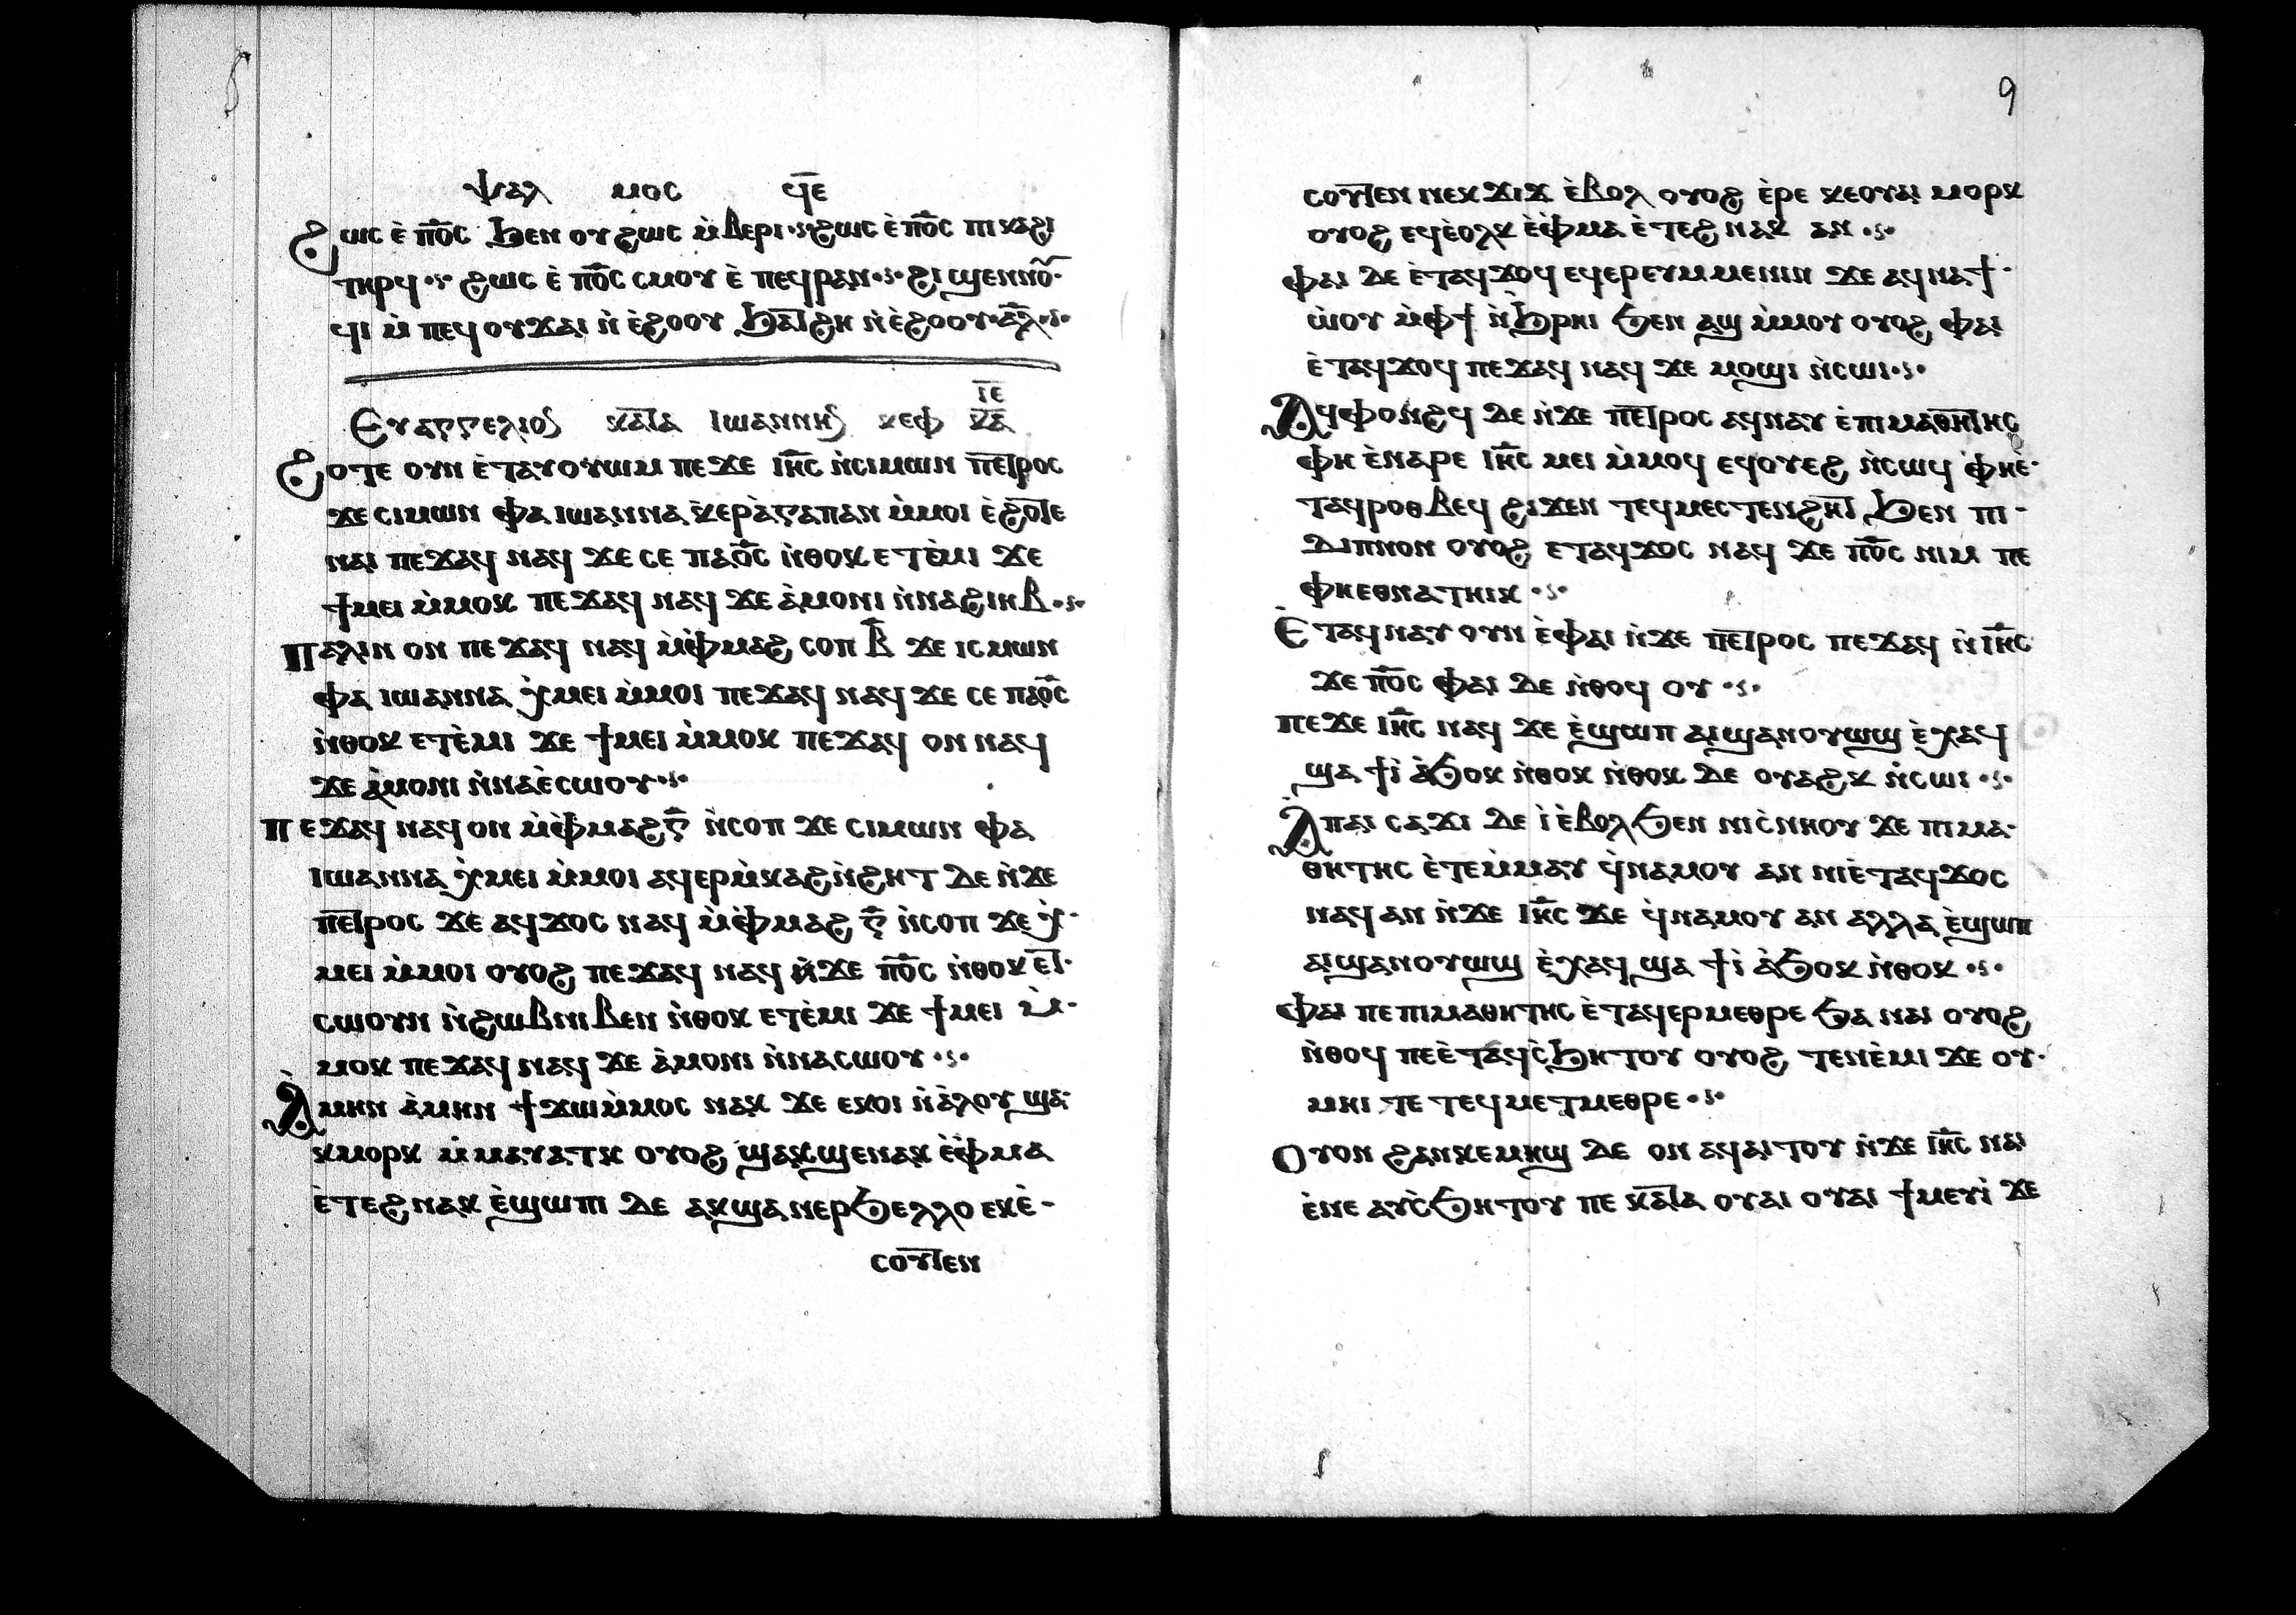 ⲯⲁⲗ ⲙⲟⲥ ϥ̅ⲉ
ϩⲱⲥ ⲉ̀ ⲡ̅ⲟ̅ⲥ ϧⲉⲛ ⲟⲩϩⲱⲥ ⲙ̀ⲃⲉⲣⲓ·ⲋ·ϩⲱⲥ ⲉ̀ ⲡ̅ⲟ̅ⲥ ⲡⲓⲕⲁϩⲓ
ⲧⲏⲣϥ·ⲋ· ϩⲱⲥ ⲉ̀ ⲡ̅ⲟ̅ⲥ ⲥⲙⲟⲩ ⲉ̀ ⲡⲉϥⲣⲁⲛ·ⲋ· ϩⲓ ϣⲉⲛⲛⲟ̅·
ϥⲓ ⲙ̀ ⲡⲉϥⲟⲩϫⲁⲓ ⲛ̀ ⲉ̀ϩⲟⲟⲩ ϧⲁ̅ⲧϩⲏ ⲛ̀ⲉ̀ϩⲟⲟⲩ·ⲁ̅ⲗ·ⲋ·
ⲓ̅ⲉ̅
Ⲉⲩⲁⲅⲅⲉⲗⲓⲟⲥ ⲕⲁ̅ⲧⲁ ⲓⲱⲁⲛⲛⲏⲥ ⲕⲉⲫ ⲕ̅ⲁ̅
ϩⲟⲧⲉ ⲟⲩⲛ ⲉ̀ⲧⲁⲩⲟⲩⲱⲙ ⲡⲉϫⲉ ⲓ̅ⲏ̅ⲥ ⲛ̀ⲥⲓⲙⲱⲛ ⲡⲉ̅ⲧⲣⲟⲥ
ϫⲉ ⲥⲓⲙⲱⲛ ⲫⲁ ⲓⲱⲁⲛⲛⲁ ⲕ̀ⲉⲣⲁ̀ⲅⲁⲡⲁⲛ ⲙ̀ⲙⲟⲓ ⲉ̀ϩⲟ̅ⲧⲉ
ⲛⲁⲓ ⲡⲉϫⲁϥ ⲛⲁϥ ϫⲉ ⲥⲉ ⲡⲁ̅ⲟ̅ⲥ ⲛ̀ⲑⲟⲕ ⲉⲧⲉ̀ⲙⲓ ϫⲉ
ϯⲙⲉⲓ ⲙ̀ⲙⲟⲕ ⲡⲉϫⲁϥ ⲛⲁϥ ϫⲉ ⲁ̀ⲙⲟⲛⲓ ⲛ̀ⲛⲁϩⲓⲏⲃ·ⲋ·
ⲡⲁⲗⲓⲛ ⲟⲛ ⲡⲉϫⲁϥ ⲛⲁϥ ⲙ̀ⲫ̀ⲙⲁϩ ⲥⲟⲡ ⲃ̅ ϫⲉ ⲓⲥⲙⲱⲛ
ⲫⲁ ⲓⲱⲁⲛⲛⲁ ⲭ̀ⲙⲉⲓ ⲙ̀ⲙⲟⲓ ⲡⲉϫⲁϥ ⲛⲁϥ ϫⲉ ⲥⲉ ⲡⲁ̅ⲟ̅ⲥ
ⲛ̀ⲑⲟⲕ ⲉⲧⲉ̀ⲙⲓ ϫⲉ ϯⲙⲉⲓ ⲙ̀ⲙⲟⲕ ⲡⲉϫⲁϥ ⲟⲛ ⲛⲁϥ
ϫⲉ ⲁ̀ⲙⲟⲛⲓ ⲛ̀ⲛⲁⲉ̀ⲥⲱⲟⲩ·ⲋ·
ⲡⲉϫⲁϥ ⲛⲁϥ ⲟⲛ ⲙ̀ⲫ̀ⲙⲁϩ ⲅ̅ ⲛ̀ⲥⲟⲡ ϫⲉ ⲥⲓⲙⲱⲛ ⲫⲁ
ⲓⲱⲁⲛⲛⲁ ⲭ̀ⲙⲉⲓ ⲙ̀ⲙⲟⲓ ⲁϥⲉⲣⲙ̀ⲕⲁϩⲛ̀ϩⲏⲧ ⲇⲉ ⲛ̀ϫⲉ
ⲡⲉ̅ⲧⲣⲟⲥ ϫⲉ ⲁϥϫⲟⲥ ⲛⲁϥ ⲙ̀ⲫ̀ⲙⲁϩ ⲅ̅ ⲛ̀ⲥⲟⲡ ϫⲉ ⲭ̀·
ⲙⲉⲓ ⲙ̀ⲙⲟⲓ ⲟⲩⲟϩ ⲡⲉϫⲁϥ ⲛⲁϥ ⲛ̀ϫⲉ ⲡ̅ⲟ̅ⲥ ⲛ̀ⲑⲟⲕ ⲉ̅ⲧ·
ⲥⲱⲟⲩⲛ ⲛ̀ϩⲱⲃⲛⲓⲃⲉⲛ ⲛ̀ⲑⲟⲕ ⲉⲧⲉ̀ⲙⲓ ϫⲉ ϯⲙⲉⲓ ⲙ̀·
ⲙⲟⲕ ⲡⲉϫⲁϥ ⲛⲁϥ ϫⲉ ⲁ̀ⲙⲟⲛⲓ ⲛ̀ⲛⲁⲥⲱⲟⲩ·ⲋ·
Ⲁ̀ⲙⲏⲛ ⲁ̀ⲙⲏⲛ ϯϫⲱⲙ̀ⲙⲟⲥ ⲛⲁⲕ ϫⲉ ⲉⲕⲟⲓ ⲛ̀ⲁ̀ⲗⲟⲩ ϣⲁ·
ⲕⲙⲟⲣⲕ ⲙ̀ⲙⲁⲩⲁⲧⲕ ⲟⲩⲟϩ ϣⲁⲕϣⲉⲛⲁⲕ ⲉ̀ⲫ̀ⲙⲁ
ⲉ̀ⲧⲉϩⲛⲁⲕ ⲉ̀ϣⲱⲡⲓ ⲇⲉ ⲁⲕϣⲁⲛⲉⲣϧⲉⲗⲗⲟ ⲉⲕⲉ̀·
ⲥⲟⲩ̅ⲧⲉⲛ
9
ⲥⲟⲩ̅ⲧⲉⲛ ⲛⲉⲕϫⲓϫ ⲉ̀ⲃⲟⲗ ⲟⲩⲟϩ ⲉ̀ⲣⲉ ⲕⲉⲟⲩⲁⲓ ⲙⲟⲣⲕ
ⲟⲩⲟϩ ⲉϥⲉ̀ⲟⲗⲕ ⲉ̀ⲫ̀ⲙⲁ ⲉ̀ⲧⲉϩⲛⲁⲕ ⲁⲛ·ⲋ·
ⲫⲁⲓ ⲇⲉ ⲉ̀ⲧⲁϥϫⲟϥ ⲉϥⲉⲣⲉⲩⲙⲙⲉⲛⲓⲛ ϫⲉ ⲁϥⲛⲁϯ·
ⲱ̀ⲟⲩ ⲙ̀ⲫϯ ⲛ̀ϧⲣⲏⲓ ϧⲉⲛ ⲁϣ ⲙ̀ⲙⲟⲩ ⲟⲩⲟϩ ⲫⲁⲓ
ⲉ̀ⲧⲁϥϫⲟϥ ⲡⲉϫⲁϥ ⲛⲁϥ ϫⲉ ⲙⲟϣⲓ ⲛ̀ⲥⲱⲓ·ⲋ·
Ⲁϥⲫⲟⲛϩϥ ⲇⲉ ⲛ̀ϫⲉ ⲡⲉ̅ⲧⲣⲟⲥ ⲁϥⲛⲁⲩ ⲉ̀ⲡⲓⲙⲁⲑⲏ̅ⲧⲏⲥ
ⲫⲏ ⲉ̀ⲛⲁⲣⲉ ⲓ̅ⲏ̅ⲥ ⲙⲉⲓ ⲙ̀ⲙⲟϥ ⲉϥⲟⲩⲉϩ ⲛ̀ⲥⲱϥ ⲫⲏⲉ̀·
ⲧⲁϥⲣⲟⲑⲃⲉϥ ϩⲓϫⲉⲛ ⲧⲉϥⲙⲉⲥⲧⲉⲛϩⲏ̅ⲧ ϧⲉⲛ ⲡⲓ·
ⲇⲓⲡⲛⲟⲛ ⲟⲩⲟϩ ⲉⲧⲁϥϫⲟⲥ ⲛⲁϥ ϫⲉ ⲡ̅ⲟ̅ⲥ ⲛⲓⲙ ⲡⲉ
ⲫⲏⲉⲑⲛⲁⲧⲏⲓⲕ·ⲋ·
Ⲉ̀ⲧⲁϥⲛⲁⲩ ⲟⲩⲛ ⲉ̀ⲫⲁⲓ ⲛ̀ϫⲉ ⲡⲉ̅ⲧⲣⲟⲥ ⲡⲉϫⲁϥ ⲛ̀ⲓ̅ⲏ̅ⲥ
ϫⲉ ⲡ̅ⲟ̅ⲥ ⲫⲁⲓ ⲇⲉ ⲛ̀ⲑⲟϥ ⲟⲩ·ⲋ·
ⲡⲉϫⲉ ⲓ̅ⲏ̅ⲥ ⲛⲁϥ ϫⲉ ⲉ̀ϣⲱⲡ ⲁⲓϣⲁⲛⲟⲩⲱϣ ⲉ̀ⲭⲁϥ
ϣⲁ ϯⲓ̀ ⲁ̀ϧⲟⲕ ⲛ̀ⲑⲟⲕ ⲛ̀ⲑⲟⲕ ⲇⲉ ⲟⲩⲁϩⲕ ⲛ̀ⲥⲱⲓ·ⲋ·
Ⲁ̀ⲡⲁⲓ ⲥⲁϫⲓ ⲇⲉ ⲓ̀ ⲉ̀ⲃⲟⲗ ϧⲉⲛ ⲛⲓⲥ̀ⲛⲏⲟⲩ ϫⲉ ⲡⲓⲙⲁ·
ⲑⲏⲧⲏⲥ ⲉ̀ⲧⲉⲙ̀ⲙⲁⲩ ϥ̀ⲛⲁⲙⲟⲩ ⲁⲛ ⲛⲓⲉ̀ⲧⲁϥϫⲟⲥ
ⲛⲁϥ ⲁⲛ ⲛ̀ϫⲉ ⲓ̅ⲏ̅ⲥ ϫⲉ ϥ̀ⲛⲁⲙⲟⲩ ⲁⲛ ⲁⲗⲗⲁ ⲉ̀ϣⲱⲡ
ⲁⲓϣⲁⲛⲟⲩⲱϣ ⲉ̀ⲭⲁϥ ϣⲁ ϯⲓ̀ ⲁ̀ϧⲟⲕ ⲛ̀ⲑⲟⲕ·ⲋ·
ⲫⲁⲓ ⲡⲉ ⲡⲓⲙⲁⲑⲏⲧⲏⲥ ⲉ̀ⲧⲁϥⲉⲣⲙⲉⲑⲣⲉ ϧⲁ ⲛⲁⲓ ⲟⲩⲟϩ
ⲛ̀ⲑⲟϥ ⲡⲉⲉ̀ⲧⲁϥⲥ̀ϧⲏⲧⲟⲩ ⲟⲩⲟϩ ⲧⲉⲛⲉ̀ⲙⲓ ϫⲉ ⲟⲩ·
ⲙⲏⲓ ⲧⲉ ⲧⲉϥⲙⲉⲧⲙⲉⲑⲣⲉ·ⲋ·
ⲟⲩⲟⲛ ϩⲁⲛⲕⲉⲙⲏϣ ⲇⲉ ⲟⲛ ⲁϥⲁⲓⲧⲟⲩ ⲛ̀ϫⲉ ⲓ̅ⲏ̅ⲥ ⲛⲁⲓ
ⲉ̀ⲛⲉ ⲁⲩⲥ̀ϧⲏⲧⲟⲩ ⲡⲉ ⲕⲁ̅ⲧⲁ ⲟⲩⲁⲓ ⲟⲩⲁⲓ ϯⲙⲉⲩⲓ̀ ϫⲉ